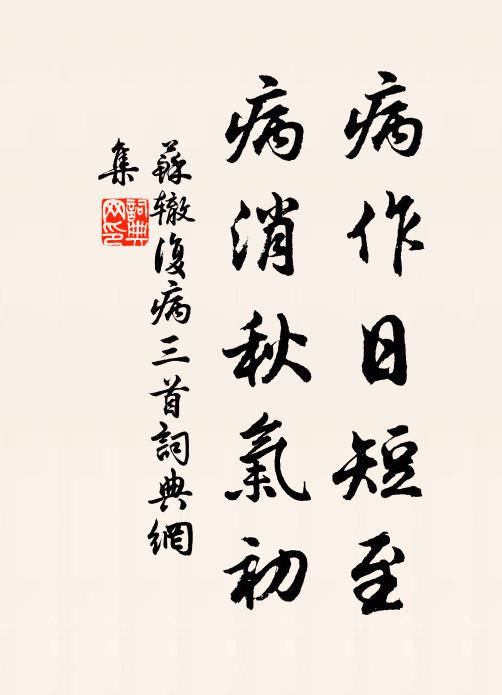 病作日短至
病消秋氣初
蘇辙復病三首詞典網
集
詞典
网